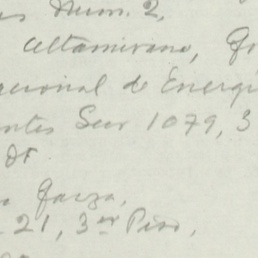 s Núm. 2,
Altamirano, G
acional de Energí
ntes Sur 1079, 3
DF
Garza,
21, 3er Piso,